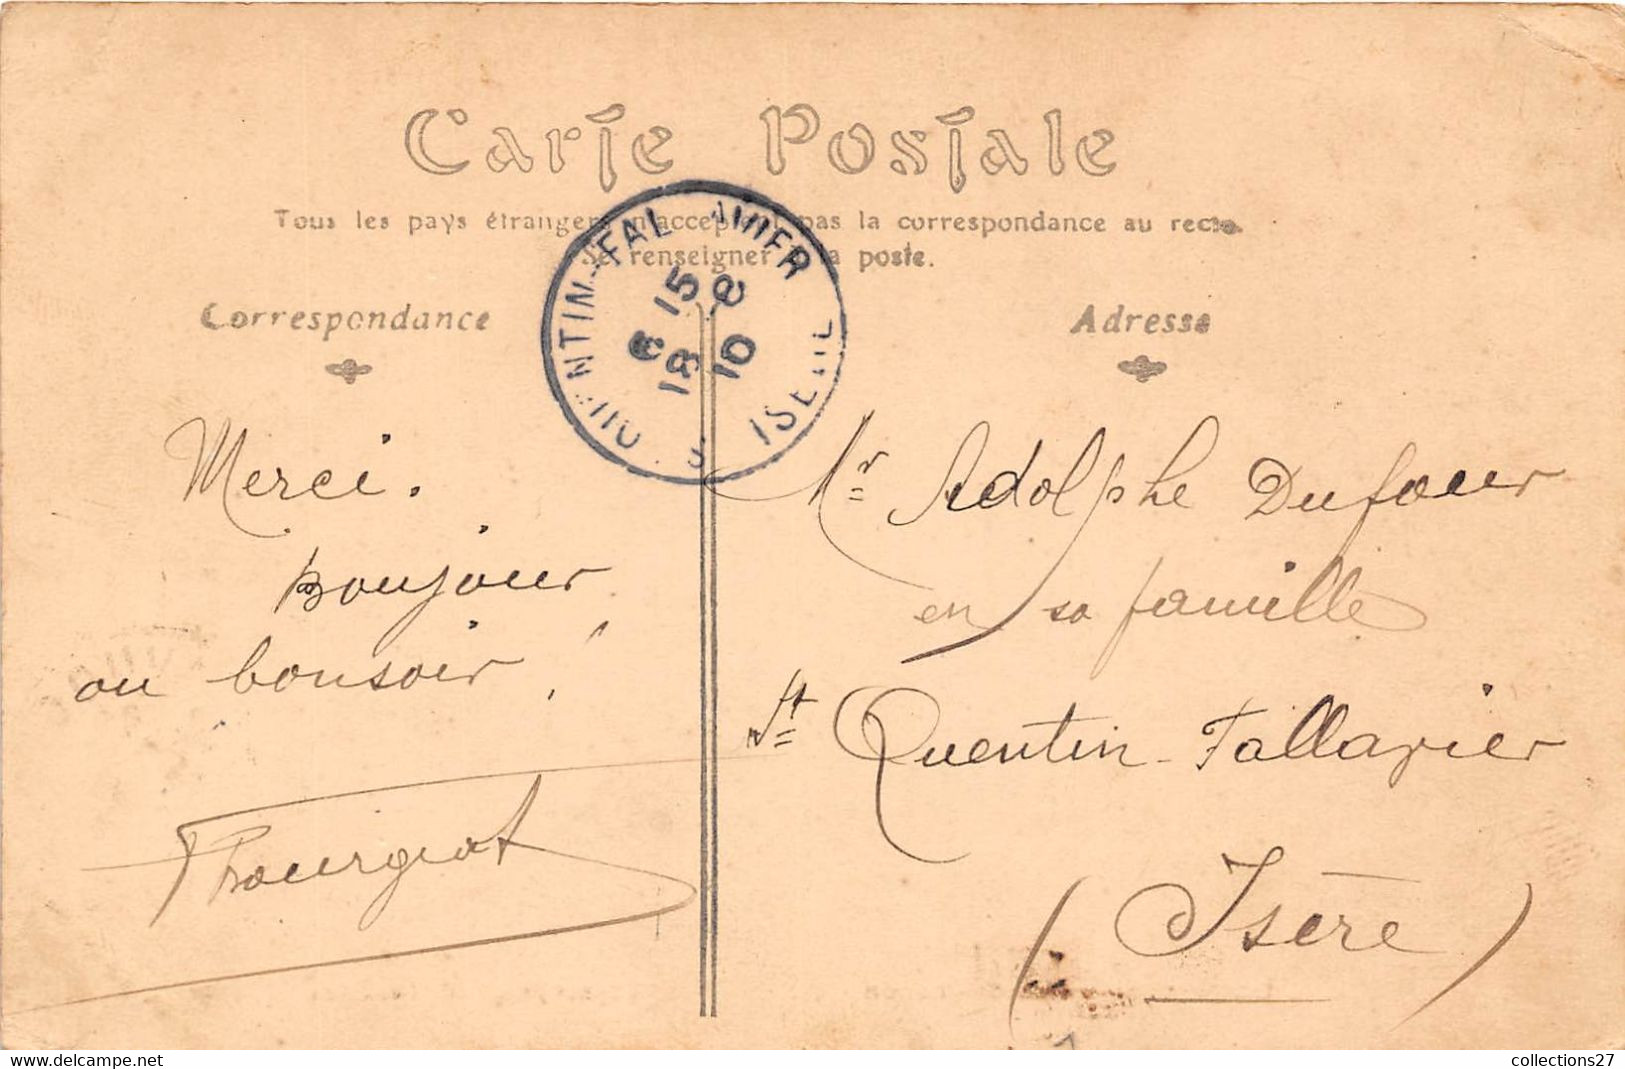 Carte Postale
Tous les pays étrangers n'acceptent pas la correspondance au recto
Se renseigner à la poste.
Correspondance
Adresse
QUENTIN-FALLAVIER
15
18 10
ISERE
Merci.
bonjour
ou bonsoir !
Mr Adolphe Dufour
en sa famille
St Quentin-Fallavier
(Isère)
www.delcampe.net
collections27